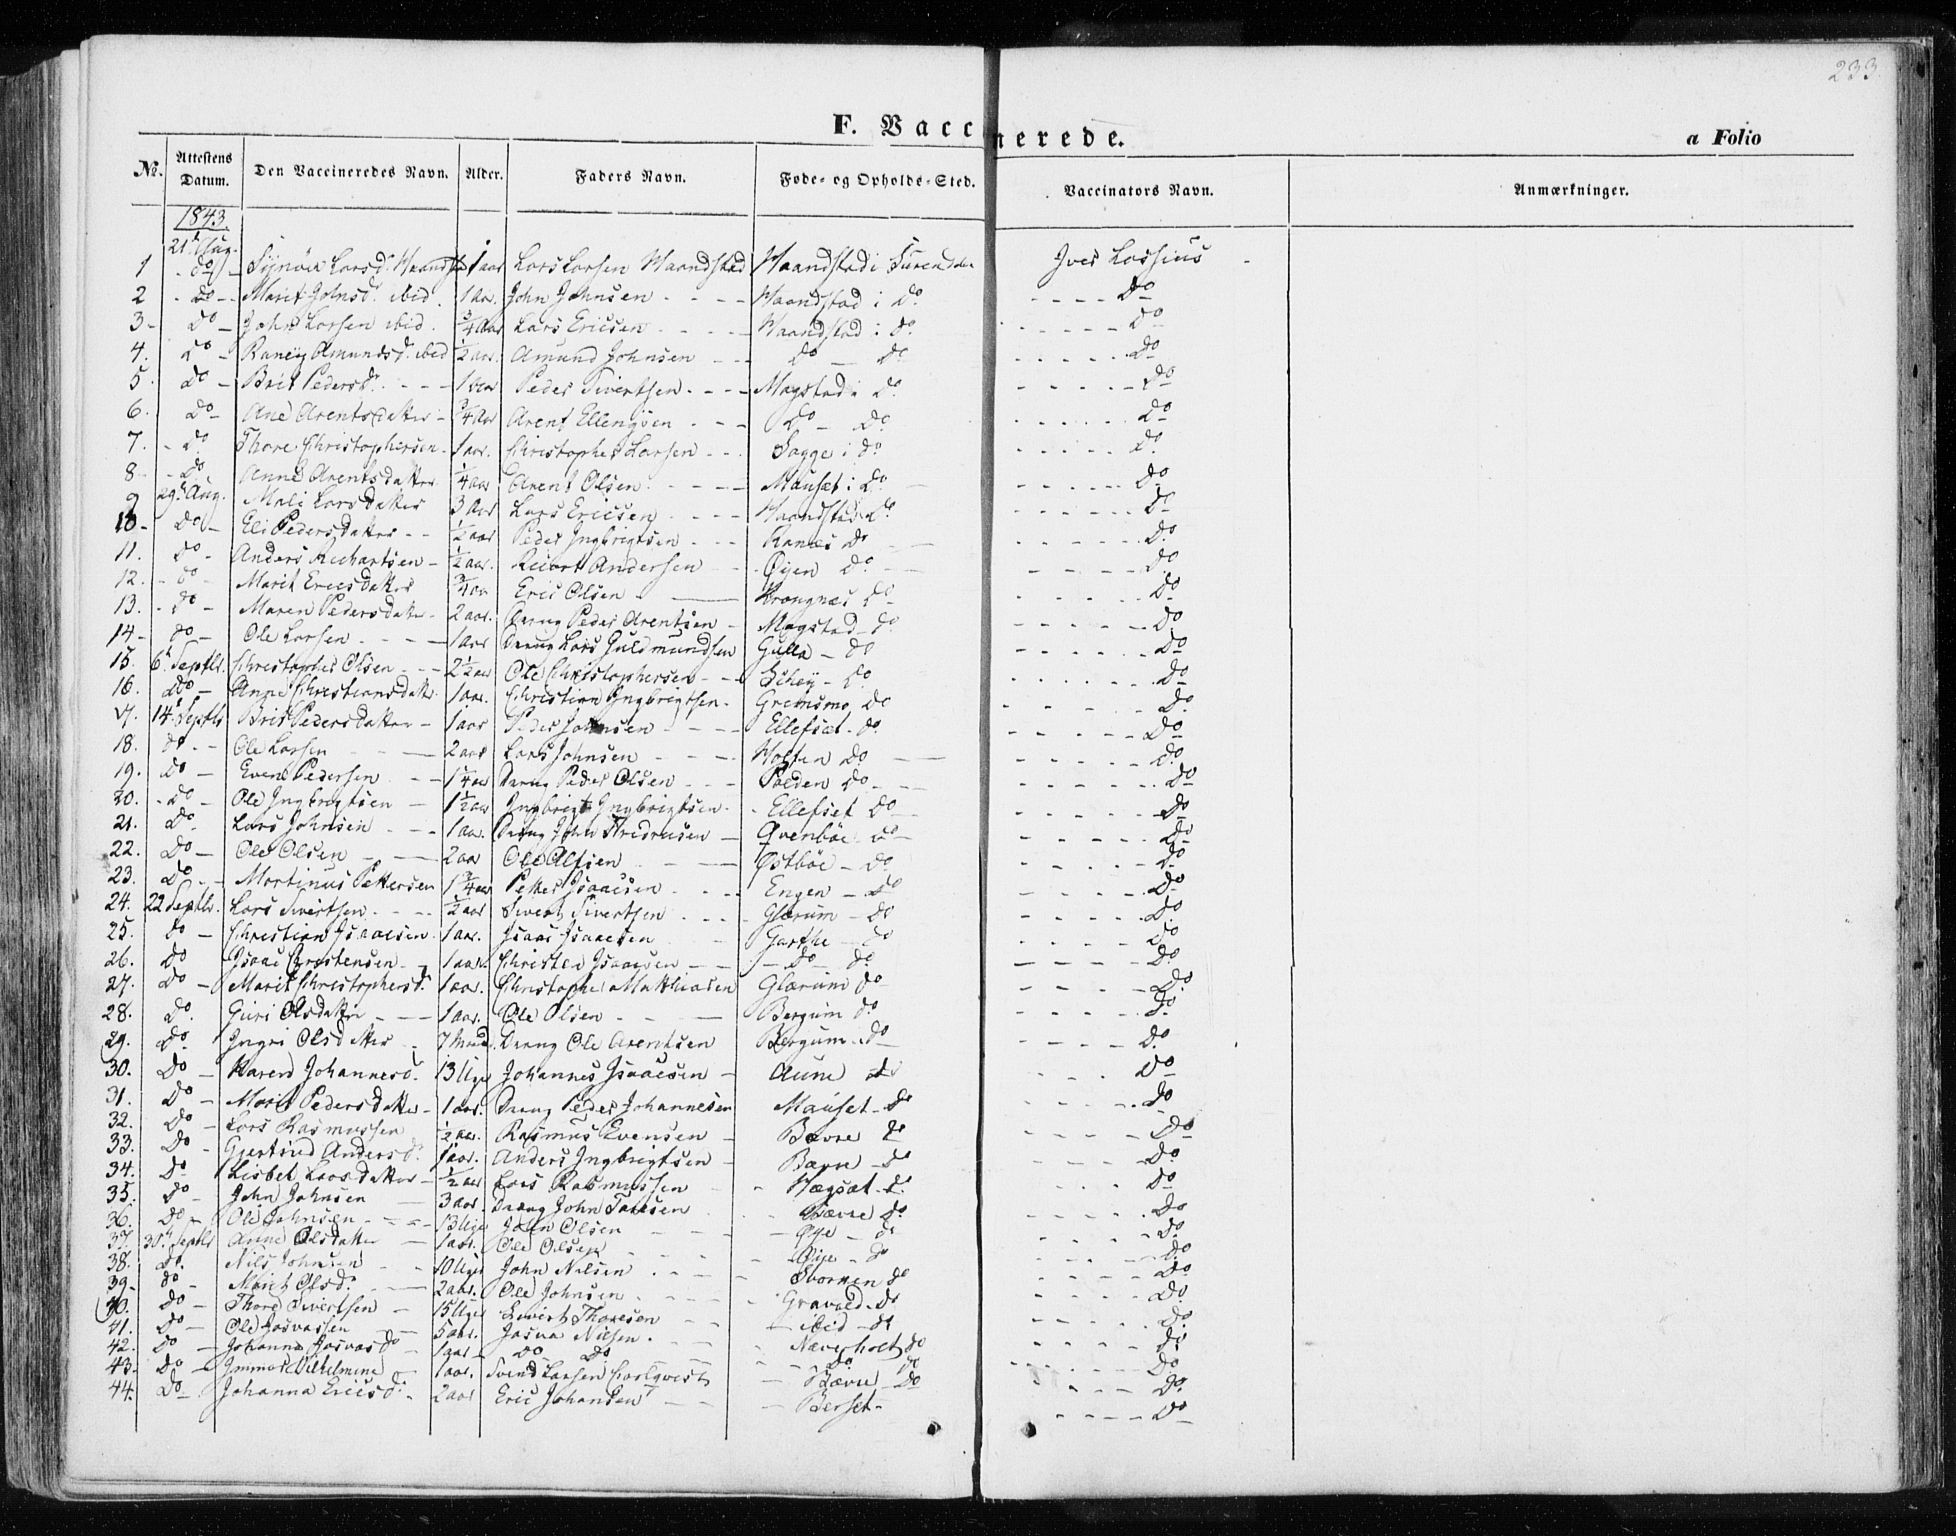 233.
F. Vaccinerede.
a Folio
No. Attestens Datum. Den Vaccineredes Navn. Alder. Faders Navn. Føde- og Opholds-Sted. Vaccinators Navn. Anmærkninger.
1843.
21 Aug.
1 do Larsd. 1 aar Lars Larsen Haandstad Haandstad i Surendalen Iver Lossius
2 Do Marit Johnsd. ibid. 1 Aar. John Johnsen Haandstad i Do Do
3 Do John Larsen ibid. 3/4 Aar Lars Ericsen Haandstad i Do Do
4. Do Amundsd. ibid 1/2 aar. Amund Johnsen Do Do Do
5. Do Brit Pedersd. 1 aar Peder Sivertsen Magstad i Do Do
6. Do Ane Arentsdatter 3/4 Aar Arent Ellengsen Do Do Do
7. Do Thore Christophersen 1 aar. Christopher Larsen Sagge i do Do
8 Do Anne Arentsdatter 1/4 aar Arent Olsen Mauset i Do Do
9 29. Aug. Mali Larsdatter 3 Aar Lars Ericsen Haandstad Do Do
10 Do Eli Pedersdatter 1/2 aar Peder Ingbrigtsen Ranæs Do Do
11. Do Anders Richartsen 1/2 aar. Andersen Øyen Do Do
12. Do Marit Ericsdatter 3/4 aar Eric Olsen Do Do
13. Do Maren Pedersdatter 2 aar. Peder Arentsen Magstad do Do
14 do Ole Larsen 1 Aar Lars Guldmundsen Gulla do Do
15. 6 Septbr. Christopher Olsen 2 1/2 aar Ole Christophersen Schey Do Do
16. do Anne Christiansdatr. 1 aar. Christian Ingbrigtsen Gremsmo Do Do
17. 14 Septbr Brit Pedersdatter 1 aar Peder Johnsen Ellefsæt do Do
18. do Ole Larsen 2 aar Lars Johnsen Holten Do Do
19. Do Even Pedersen 1 1/4 aar Peder Olsen Polden Do Do
20. Do Ole Ingbrigtsen 1 1/2 aar Ingbrigt Ingbrigtsen Ellefset Do Do
21. Do Lars Johnsen 1 aar. John Qvenböe Do Do
22. Do Ole Olsen 2 aar Ole Østböe Do Do
23. Do Mortinus Pettersen 1 3/4 aar Petter Isaacsen Engen Do Do
24. 22 Septbr. Lars Sivertsen 1/2 aar Sivert Sivertsen Glærum Do Do
25. do Christian Isaacsen 1 aar. Isaac Isaacsen Garthe do Do
26. Do Isaac Christensen 1 aar. Christen Isaacsen Do do Do
27. Do Marit Christophersd. 1 aar. Christopher Matthiasen Glærum do Do
28. Do. Guri Olsdatter 1 aar. Ole Olsen Bergum do Do
29. Do Ingri Olsdatter 7 Ole Arentsen Bergum do Do
30. Do Karen Johannesd. 13 Uger Johannes Isaacsen Aune do Do
31. Do Marit Pedersdatter 1 aar. Peder Johannesen Mauset do Do
32. Do Lars Rasmussen 1/2 aar. Rasmus Evensen Bævre do Do
33. Do Gjertrud Andersd. 1 aar. Anders Ingbrigtsen Bævre do Do
34. Do Lisbet Larsdatter 1/2 aar Lars Rasmussen do. Do
35. Do John Johnsen 3 aar John Bævre do. Do
36. Do Ole Johnsen 13 Uger John Olsen Øye do Do
37. 30 Septbr Anne Olsdatter 1 aar. Ole Olsen Øye do Do
38. Do. Nils Johnsen 10 Uger John Nilsen do Do
39 do Marit Olsd. 2 aar. Ole Johnsen do Do
40. Do Thore Sivertsen 15 Uger Sivert Thoresen ibid do Do
41. Do Ole Josvassen 5 aar. Josva Nilsen Næverholt do Do
42. Do Johanna Josvasd. 1 aar do Do Do do Do
43. Do Vilhelmine 1 aar. Svend Larsen Bævre Do Do
44. Do Johanna Ericsd. 2 aar Eric Johansen Berset Do